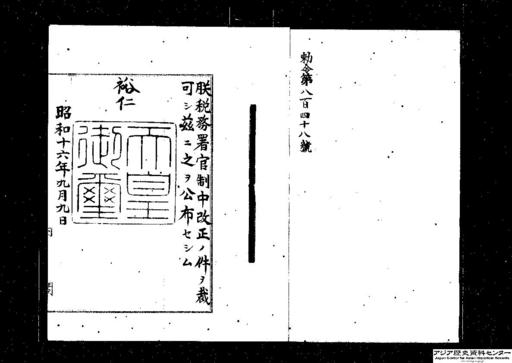 勅令第八百四十八號
朕税務署官制中改正ノ件ヲ裁
可シ茲ニ之ヲ公布セシム
裕仁
天皇
御璽
昭和十六年九月九日
内
閣
アジア歴史資料センター
Japan Center for Asian Historical Records